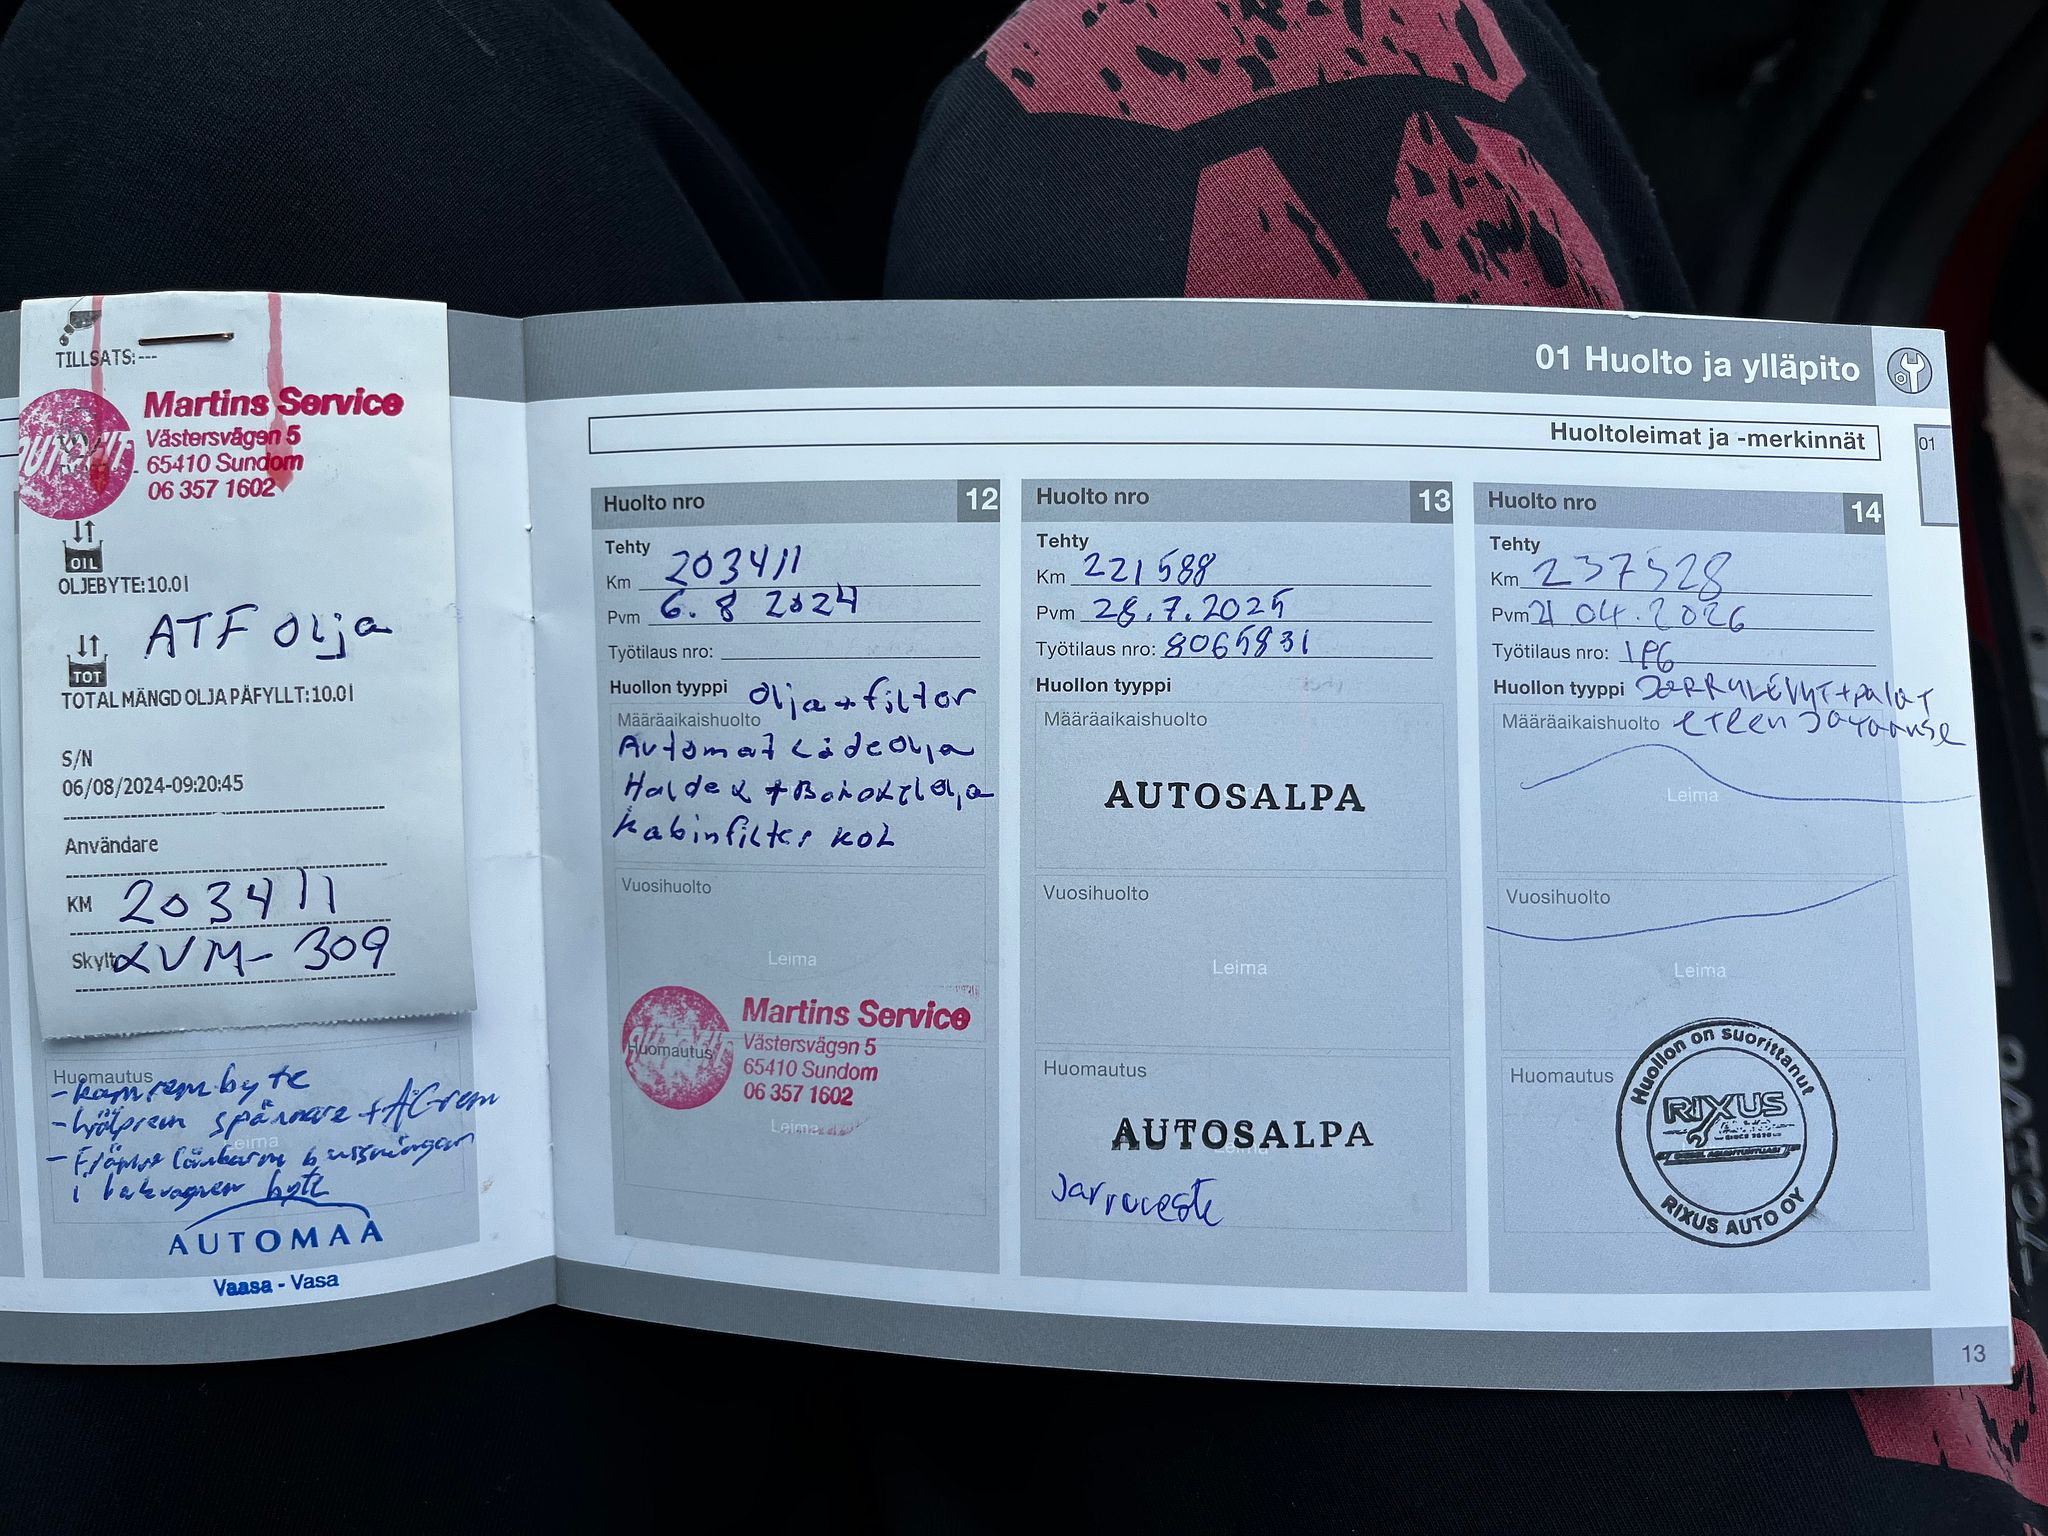 TILLSATS:---
Martins Service
Västersvägen 5
65410 Sundom
06 357 1602
OIL
OLJEBYTE:10.0l
ATF Olja
TOT
TOTAL MÄNGD OLJA PÅFYLLT:10.0l
S/N
06/08/2024-09:20:45
Användare
KM 203411
Skylt LVM-309
Huomautus
-kamrem byte
-hjälprem spännare + AC-rem
i bakvagnen byte
AUTOMAA
Vaasa - Vasa
01 Huolto ja ylläpito
Huoltoleimat ja -merkinnät
01
Huolto nro 12
Tehty
Km 203411
Pvm 6.8 2024
Työtilaus nro:
Huollon tyyppi Olja + filter
Määräaikaishuolto
Automat Lådeolja
Haldex +
Kabinfilter KOL
Vuosihuolto
Leima
Martins Service
Huomautus
Västersvägen 5
65410 Sundom
06 357 1602
Leima
Huolto nro 13
Tehty
Km 221588
Pvm 28.7.2025
Työtilaus nro: 8065831
Huollon tyyppi
Määräaikaishuolto
AUTOSALPA
Vuosihuolto
Leima
Huomautus
AUTOSALPA
Leima
Jarruneste
Huolto nro 14
Tehty
Km 237528
Pvm 21 04.2026
Työtilaus nro: 196
Huollon tyyppi JARRULEVYT+palat
Määräaikaishuolto eteen ja taakse
Leima
Vuosihuolto
Leima
Huomautus
Huollon on suorittanut
RIXUS
RIXUS AUTO OY
13